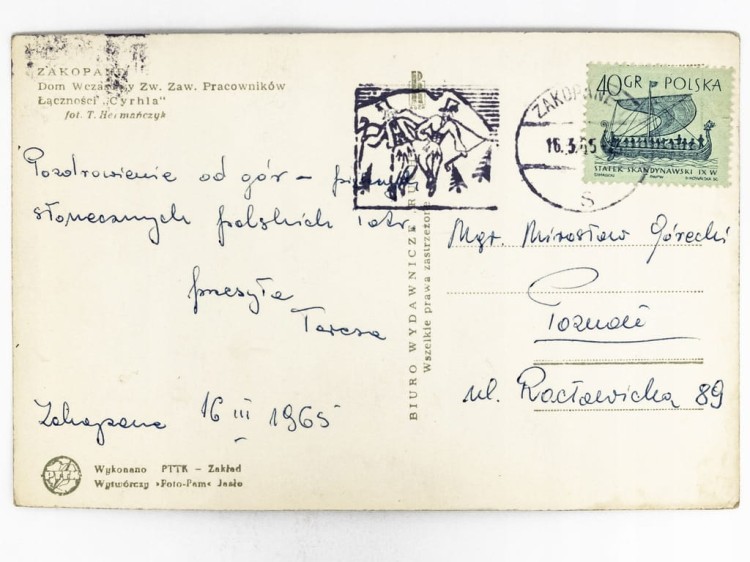 ZAKOPANE
Dom Wczasowy Zw. Zaw. Pracowników
Łączności „Cyrhla"
fot. T. Hermańczyk
Pozdrowienie od gór –
słonecznych polskich Tatr
przesyła
Teresa
Zakopane 16 III 1965
Wykonano PTTK – Zakład
Wytwórczy »Foto-Pam« Jasło
BIURO WYDAWNICZE RU
Wszelkie prawa zastrzeżone
ZAKOPANE
16.3.65
S
40 GR POLSKA
STATEK SKANDYNAWSKI IX W
Mgr. Mirosław Górecki
Poznań
ul. Racławicka 89